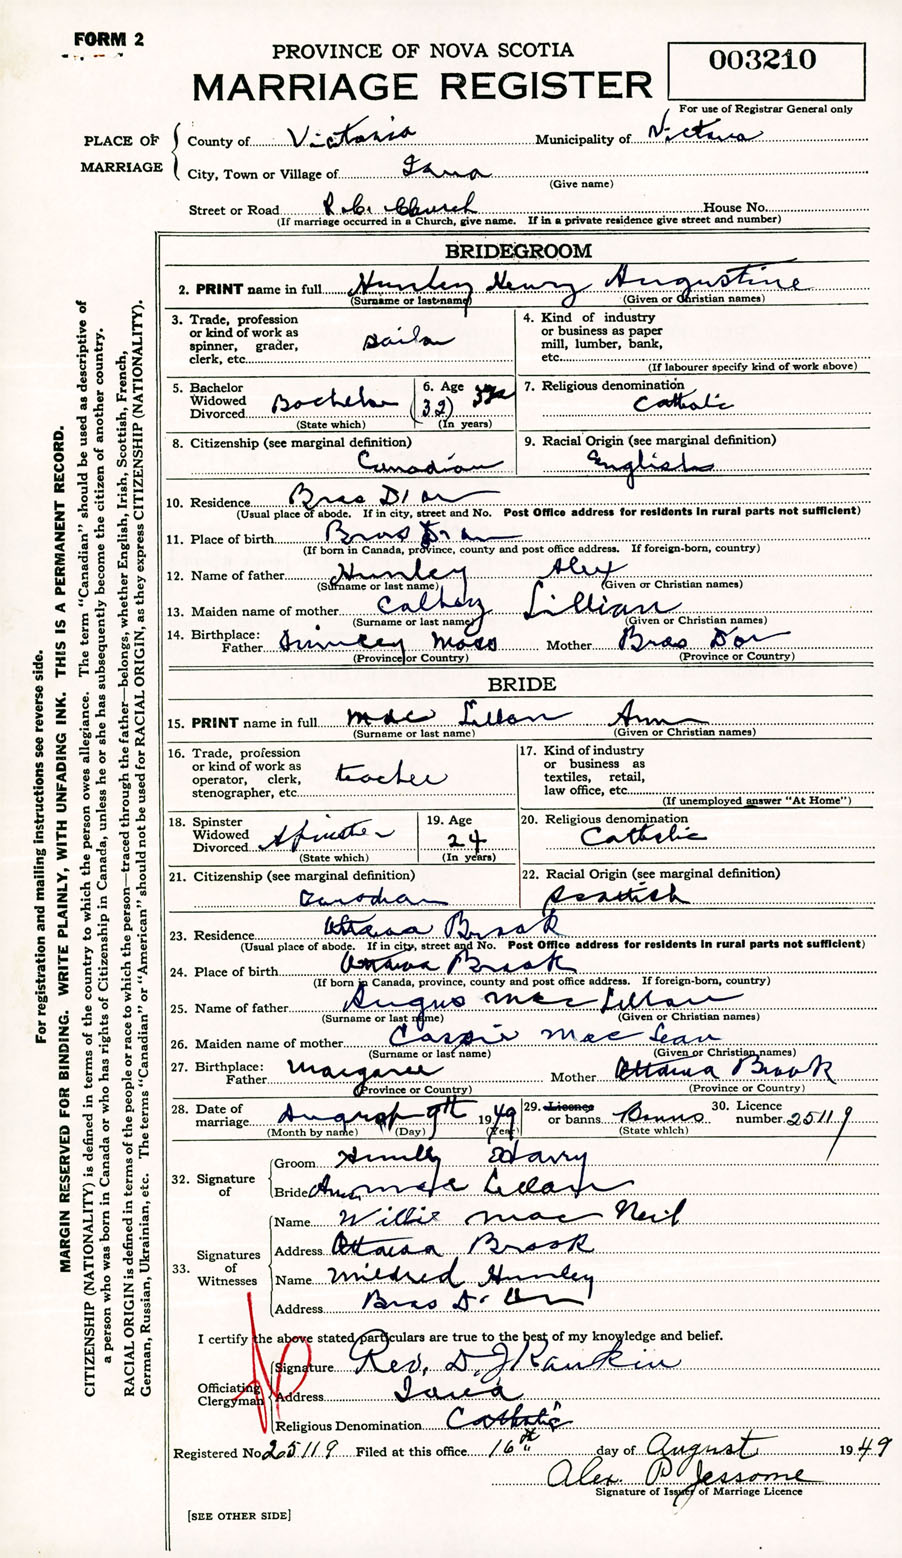 FORM 2
PROVINCE OF NOVA SCOTIA
MARRIAGE REGISTER
003210
For use of Registrar General only
PLACE OF MARRIAGE
County of Victoria Municipality of Victoria
City, Town or Village of Iona
(Give name)
Street or Road R.C. Church House No.
(If marriage occurred in a Church, give name. If in a private residence give street and number)
BRIDEGROOM
2. PRINT name in full Hunley Henry Augustine
(Surname or last name) (Given or Christian names)
3. Trade, profession or kind of work as spinner, grader, clerk, etc. Sailor
4. Kind of industry or business as paper mill, lumber, bank, etc.
(If labourer specify kind of work above)
5. Bachelor Widowed Divorced Bachelor
(State which)
6. Age (32) 32
(In years)
7. Religious denomination Catholic
8. Citizenship (see marginal definition) Canadian
9. Racial Origin (see marginal definition) English
10. Residence Bras D'or
(Usual place of abode. If in city, street and No. Post Office address for residents in rural parts not sufficient)
11. Place of birth Bras D'or
(If born in Canada, province, county and post office address. If foreign-born, country)
12. Name of father Hunley Alex
(Surname or last name) (Given or Christian names)
13. Maiden name of mother Lillian
(Surname or last name) (Given or Christian names)
14. Birthplace: Father Mass Mother Bras D'or
(Province or Country) (Province or Country)
BRIDE
15. PRINT name in full Mac Lellan Ann
(Surname or last name) (Given or Christian names)
16. Trade, profession or kind of work as operator, clerk, stenographer, etc. teacher
17. Kind of industry or business as textiles, retail, law office, etc.
(If unemployed answer "At Home")
18. Spinster Widowed Divorced Spinster
(State which)
19. Age 24
(In years)
20. Religious denomination Catholic
21. Citizenship (see marginal definition) Canadian
22. Racial Origin (see marginal definition) Scottish
23. Residence Ottawa Brook
(Usual place of abode. If in city, street and No. Post Office address for residents in rural parts not sufficient)
24. Place of birth Ottawa Brook
(If born in Canada, province, county and post office address. If foreign-born, country)
25. Name of father Angus Mac Lellan
(Surname or last name) (Given or Christian names)
26. Maiden name of mother Cassie Mac Lean
(Surname or last name) (Given or Christian names)
27. Birthplace: Father Margaree Mother Ottawa Brook
(Province or Country) (Province or Country)
28. Date of marriage August 9th 1949
(Month by name) (Day) (Year)
29. Licence or banns Banns
(State which)
30. Licence number 25119
32. Signature of
Groom Hunley Harry
Bride Ann Mac Lellan
33. Signatures of Witnesses
Name Willie Mac Neil
Address Ottawa Brook
Name Mildred Hunley
Address Bras D'Or
I certify the above stated particulars are true to the best of my knowledge and belief.
Officiating Clergyman
Signature Rev. D. J Rankin
Address Iona
Religious Denomination Catholic
Registered No 25119 Filed at this office 16th day of August 1949
Alex. P Jessome
Signature of Issuer of Marriage Licence
[SEE OTHER SIDE]
For registration and mailing instructions see reverse side.
MARGIN RESERVED FOR BINDING. WRITE PLAINLY, WITH UNFADING INK. THIS IS A PERMANENT RECORD.
CITIZENSHIP (NATIONALITY) is defined in terms of the country to which the person owes allegiance. The term "Canadian" should be used as descriptive of
a person who was born in Canada or who has rights of Citizenship in Canada, unless he or she has subsequently become the citizen of another country.
RACIAL ORIGIN is defined in terms of the people or race to which the person—traced through the father—belongs, whether English, Irish, Scottish, French,
German, Russian, Ukrainian, etc. The terms "Canadian" or "American" should not be used for RACIAL ORIGIN, as they express CITIZENSHIP (NATIONALITY).